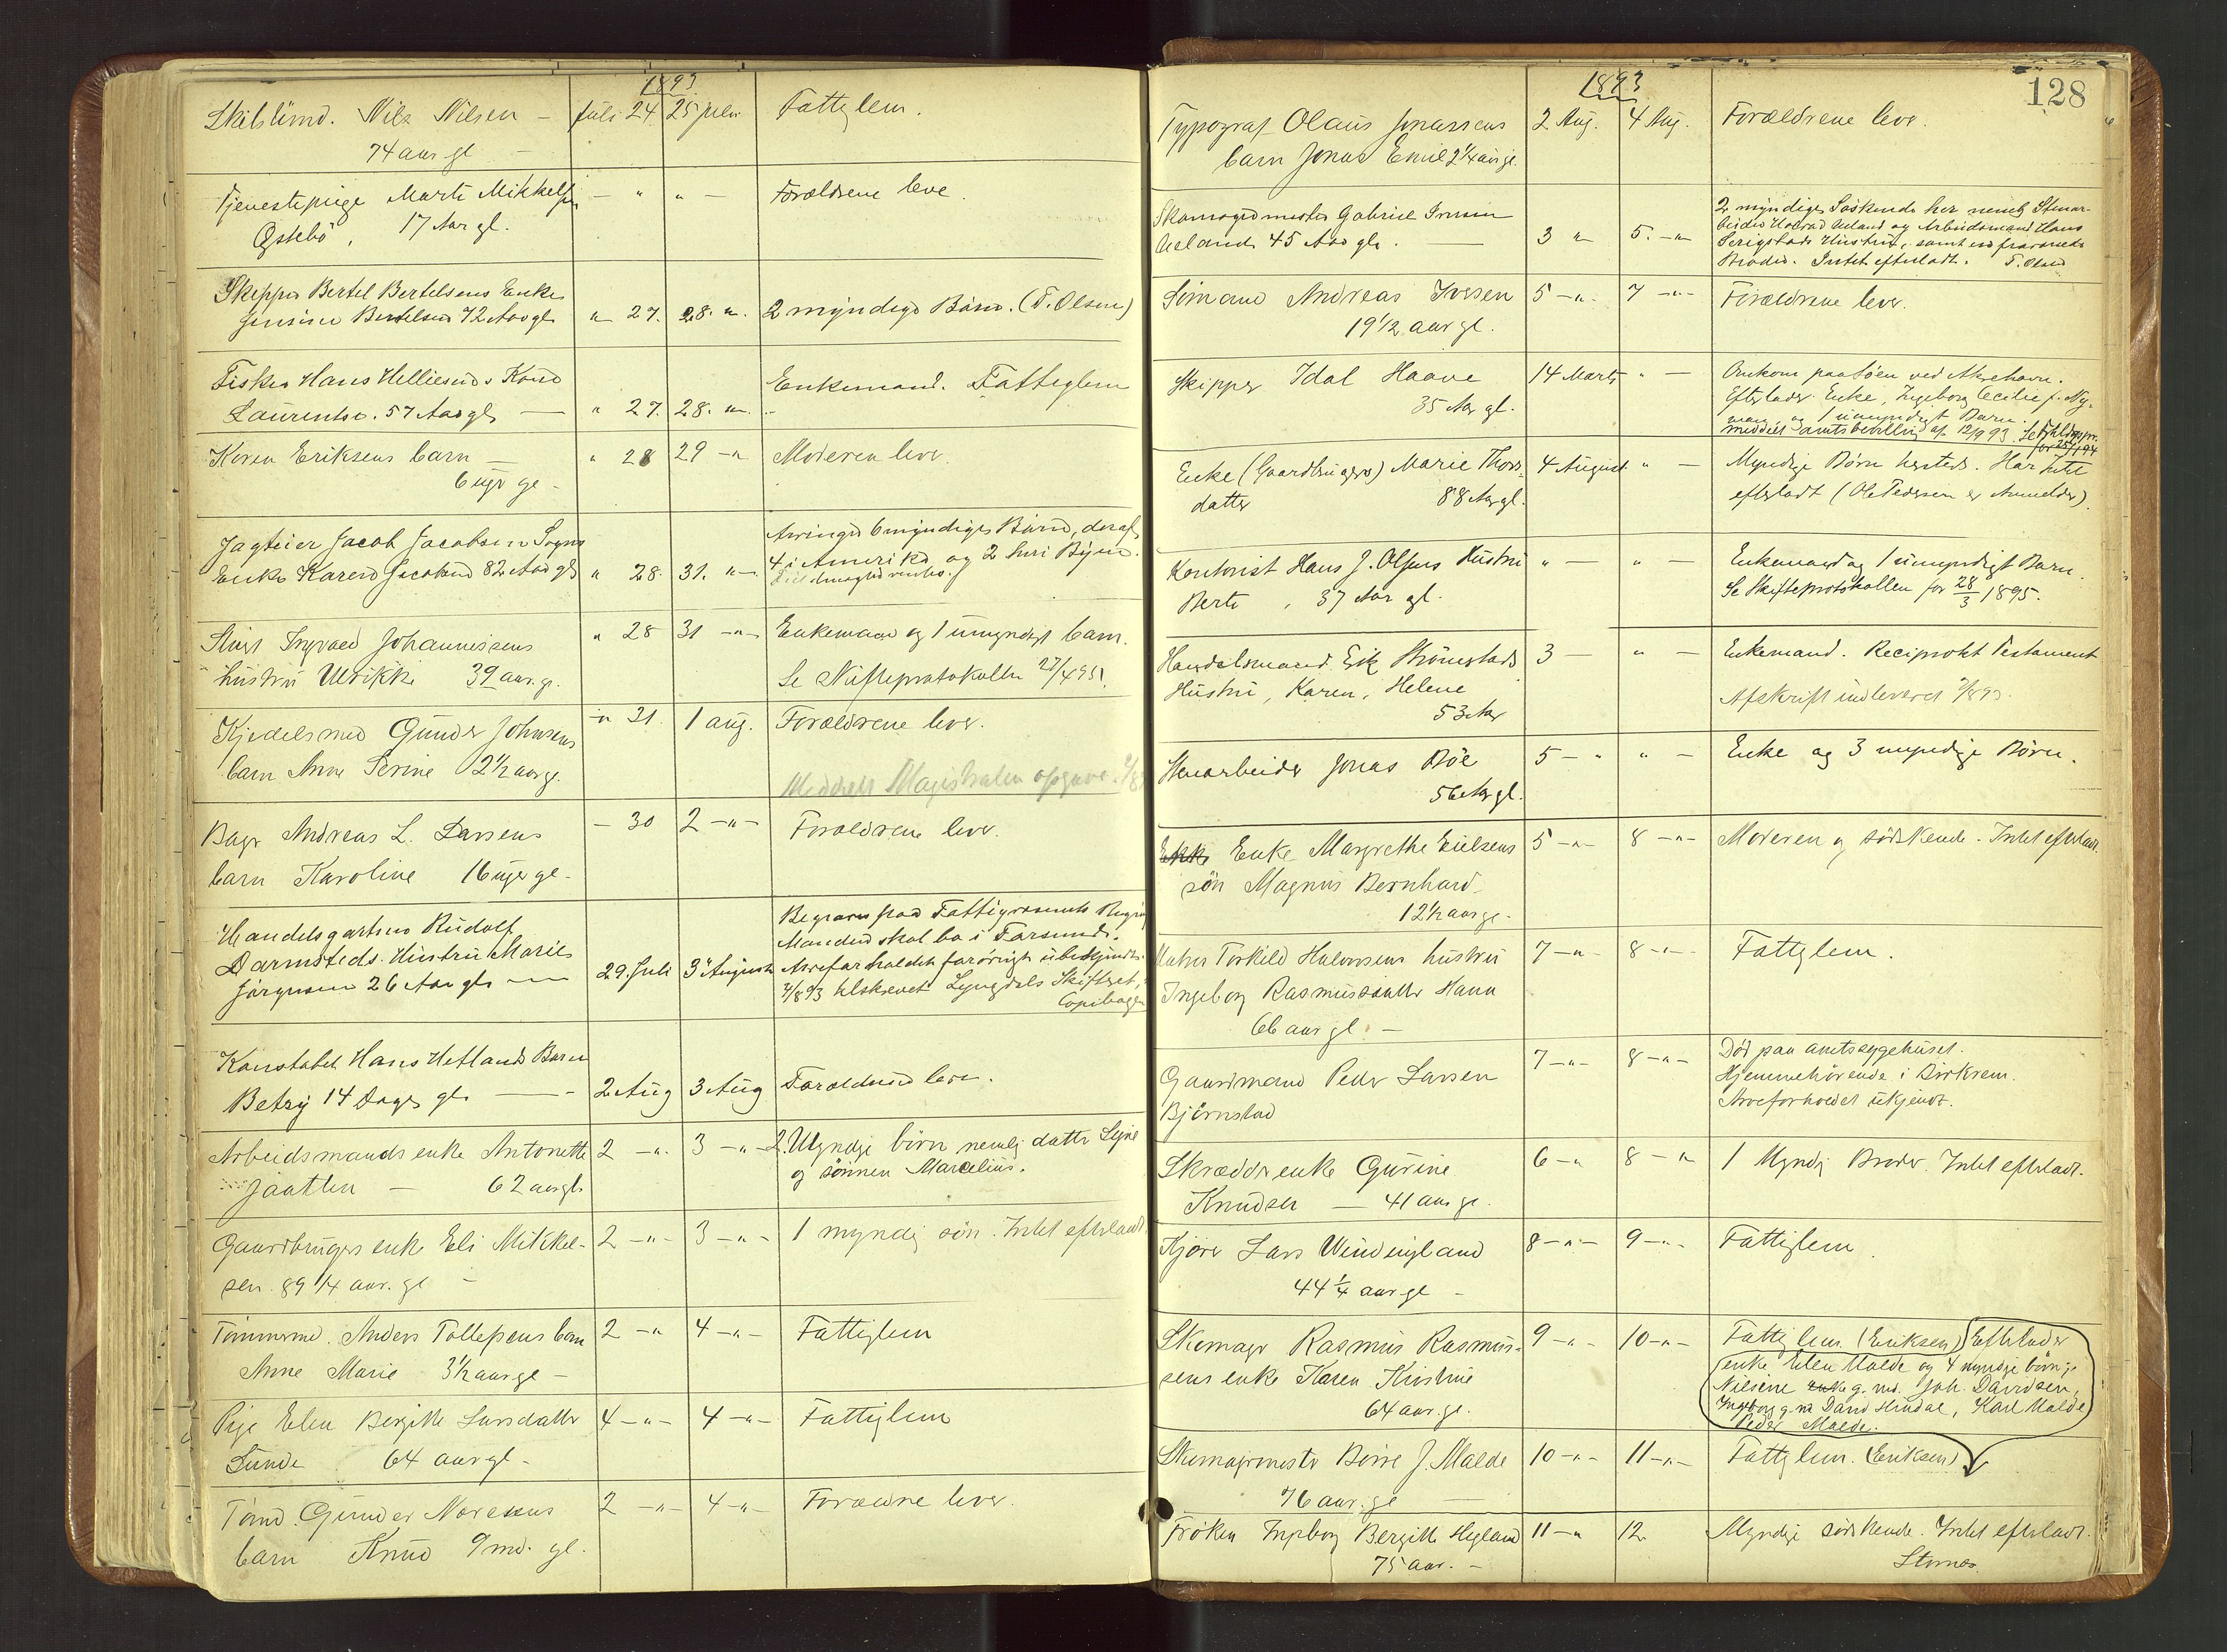 1893
Nils Nilsen - Juli 24 25 Juli Fattiglem.
74 aar gl -
Tjenestepige Marte Mikkelsen - " " - Forældrene leve.
Østebö, 17 Aar gl.
Skipper Bertel Bertelsens Enke
Bertelsen 72 Aar gl. " 27. 28. " 2 myndige Börn. (T. Olsen)
Fisker Hans Helliesens Kone Enkemand. Fattiglem
Laurentse. 57 Aar gl. — " 27. 28. "
Karen Eriksens barn — " 28 29 -"- Moderen lever.
6 uger gl -
Jagteier Jacob Jacobsen Arvinger 6 myndige Börn, deraf
Enke Karen Jacobsen 82 Aar gl. " 28. 31. "- 4 i Amerika og 2 her i Byen.
Ingvald Johannessens " 28 31 -"- Enkemand og 1 umyndigt barn.
hustru Ulrikke 39 aar gl. Se Skifteprotokollen 27/4 95.
Kjedelsmed Gunder Johnsens -" 31. 1 aug. Forældrene lever.
barn Anne Serine 2 1/2 aar gl.
Meddelt Magistraten opgave
Bager Andreas L. Larsens - 30 2 -"- Forældrene lever.
barn Karoline 16 uger gl -
Handelsgartner Rudolf Begraves paa Fattigvæsenets
Darmsteds Hustru Marie Manden skal bo i Farsund.
Jörgensen 26 Aar gl. — 29. Juli 3 August Arveforholdet forövrigt ubekjendt.
4/8 93 tilskrevet Lyngdals Skifteret,
Copibogen
Konstabel Hans Hetlands Barn
Betzy 14 Dage gl. — 2 Aug 3 Aug Forældrene leve.
Arbeidsmands enke Antonette 2 -"- 3 -"- 2. Myndige börn nemlig datter
Jaatten — 62 aar gl. og sönnen Marcelius.
Gaardbrugers enke Eli Mikkel- 2 -"- 3 -"- 1 myndig sön. Intet efterladt
sen. 89 1/4 aar. gl -
Tömmermd. Anders Tollefsens barn 2 -" 4 -"- Fattiglem
Anne Marie 3 1/2 aar gl -
Pige Elen Bergitte Larsdatter 4 -"- 4 -"- Fattiglem
Lunde 64 aar gl -
Gunder 2 -"- 4 -"- Forældrene lever.
barn Knud 9 md. gl.
128
1893
Typograf Olaus Jonassens 2 Aug. 4 Aug. Forældrene leve.
barn Jonas Emil 2 1/4 aar gl.
Skomagermester Gabriel 2 myndige Söskende her nemlig Stenar-
Ueland 45 Aar gl. — 3 " 5. -" beider Ueland og Arbeidsmand Hans
Serigstads Hustru, samt en fraværende
Broder. Intet efterladt. T. Olsen
Sömand Andreas Iversen 5 -"- 7 -"- Forældrene lever.
19 1/2 aar gl.
Skipper Idal Haave 14 Marts " - Omkom paa Söen ved Akrehavn.
35 Aar gl. Efterlader Enke, Ingeborg Cecilie f. Ny-
man og 1 umyndigt Barn.
meddelt amtsbevilling af 12/9 93.
Enke (Gaardbrugers) Marie Thors- 4 August " - Myndige Börn hersteds. Har Intet
datter 88 Aar gl. efterladt (Ole Pedersen er Anmelder).
Kontorist Hans J. Olsens Hustru " - " - Enkemand og 1 umyndigt Barn.
Berte, 37 Aar gl. Se Skifteprotokollen for 28/3 1895.
Handelsmand Erik Strömstads 3 - " - Enkemand. Reciprokt Testament
Hustru, Karen, Helene Afskrift indleveret
53 Aar
Stenarbeider Jonas Böe 5 - " " - Enke og 3 myndige Börn.
56 Aar gl.
Enke Margrethe Eielsens 5 -"- 8 -"- Moderen og södskende. Intet efterladt.
sön Magnus Bernhard
12 1/2 aar gl -
Torkild Halvorsens hustru 7 -"- 8 -"- Fattiglem.
Ingeborg Rasmusdatter Haua
66 aar gl. -
Gaardmand Peder Larsen 7 -"- 8 -"- Död paa amtssygehuset.
Björnstad Hjemmehörende i Birkrem.
Arveforholdet ukjendt.
Skrædderenke Gurine 6 -" 8 -" 1 Myndig Broder. Intet efterladt.
Knudsen — 41 aar gl.
Kjörer Lars Windingland 8 -"- 9 -"- Fattiglem.
44 1/4 aar gl -
Skomager Rasmus Rasmus- 9 -"- 10 -"- Fattiglem. (Eriksen) Efterlader
sens enke Karen Kirstine enke Elen Malde og 4 myndige börn
64 aar. gl. Nielsine g. m. Joh. Davidsen,
Ingeborg g. m. David Hindal, Karl Malde
Peder Malde.
Skomagermester Börre J. Malde 10 -"- 11 -"- Fattiglem. (Eriksen)
76 aar. gl —
Fröken Ingeborg Bergitte Hegland 11 -" 12 Myndige södskende. Intet efterladt.
75 aar. -